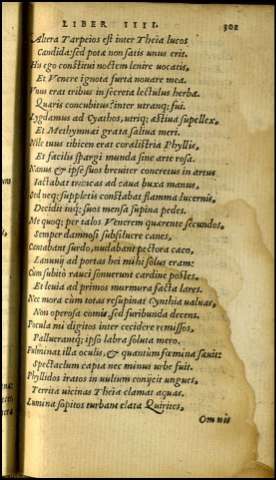 LIBER IIII. 302
Altera Tarpeios est inter Theia lucos
Candida: sed potæ non satis unus erit.
His ego constitui noctem lenire uocatis,
Et Venere ignota furta nouare mea.
Vnus erat tribus in secreta lectulus herba.
Quæris concubitus? inter utranq; fui.
Lygdamus ad Cyathos, utriq; æstiua supellex,
Et Methymnæi grata saliua meri.
Nile tuus tibicen erat coralistria Phyllis,
Et facilis spargi munda sine arte rosa.
Nanus & ipse suos breuiter concretus in artus
Iactabat truncas ad caua buxa manus,
Sed neq; suppletis constabat flamma lucernis,
Decidit inq; suos mensa supina pedes.
Me quoq; per talos Venerem quærente secundos,
Semper damnosi subsiluere canes,
Cantabant surdo, nudabant pectora cæco,
Lanuuij ad portas hei mihi solus eram:
Cum subitò rauci sonuerunt cardine postes,
Et leuia ad primos murmura facta lares.
Nec mora cùm totas resupinat Cynthia ualuas,
Non operosa comis, sed furibunda decens.
Pocula mi digitos inter cecidere remissos,
Palluerantq; ipso labra soluta mero.
Fulminat illa oculis, & quantùm fœmina sæuit:
Spectaclum capta nec minus urbe fuit.
Phyllidos iratos in uultum conijcit ungues,
Territa uicinas Theia clamat aquas.
Lumina sopitos turbant elata Quirites,
Omnis